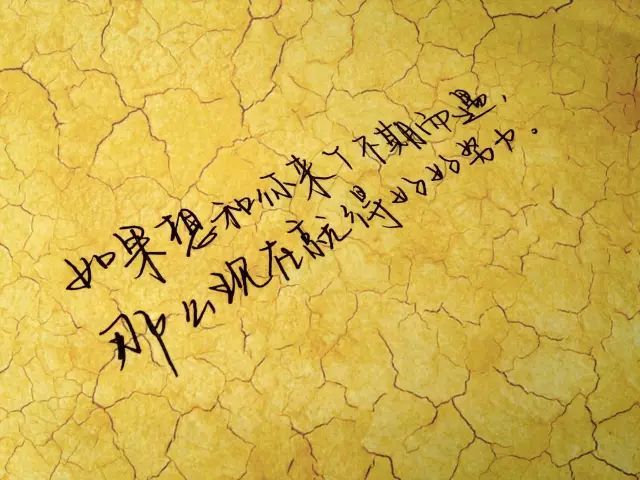 如果想和你来丫不期而遇，
那么现在就得好好努力。